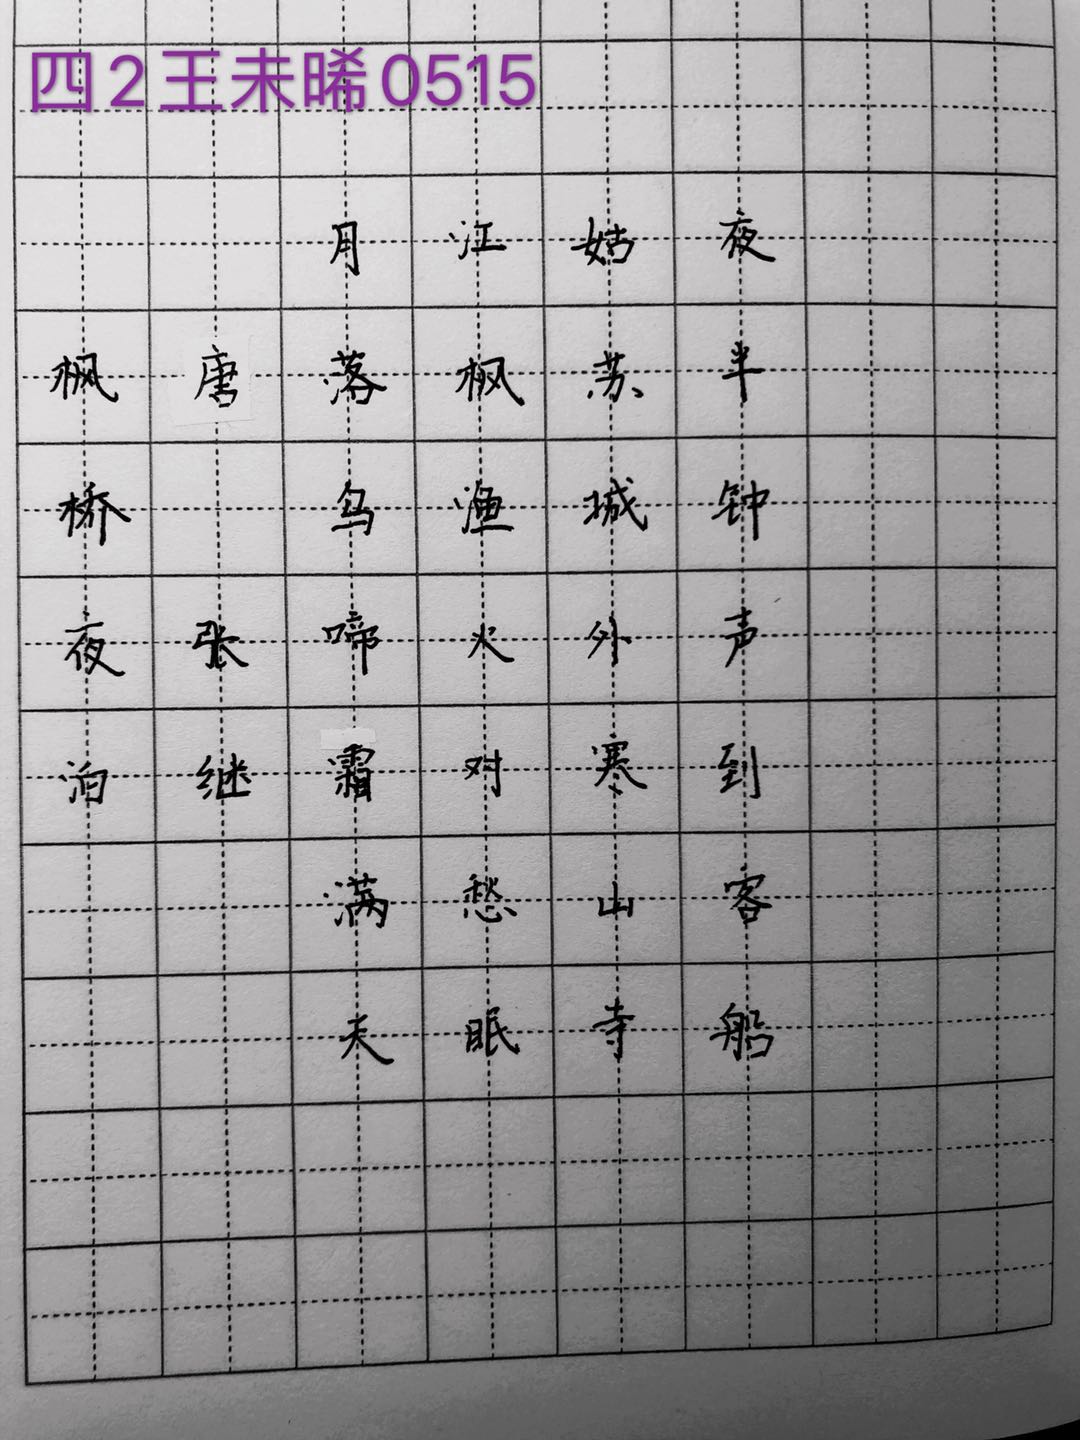 四2王未晞0515
枫桥夜泊
唐 张继
月落乌啼霜满天
江枫渔火对愁眠
姑苏城外寒山寺
夜半钟声到客船